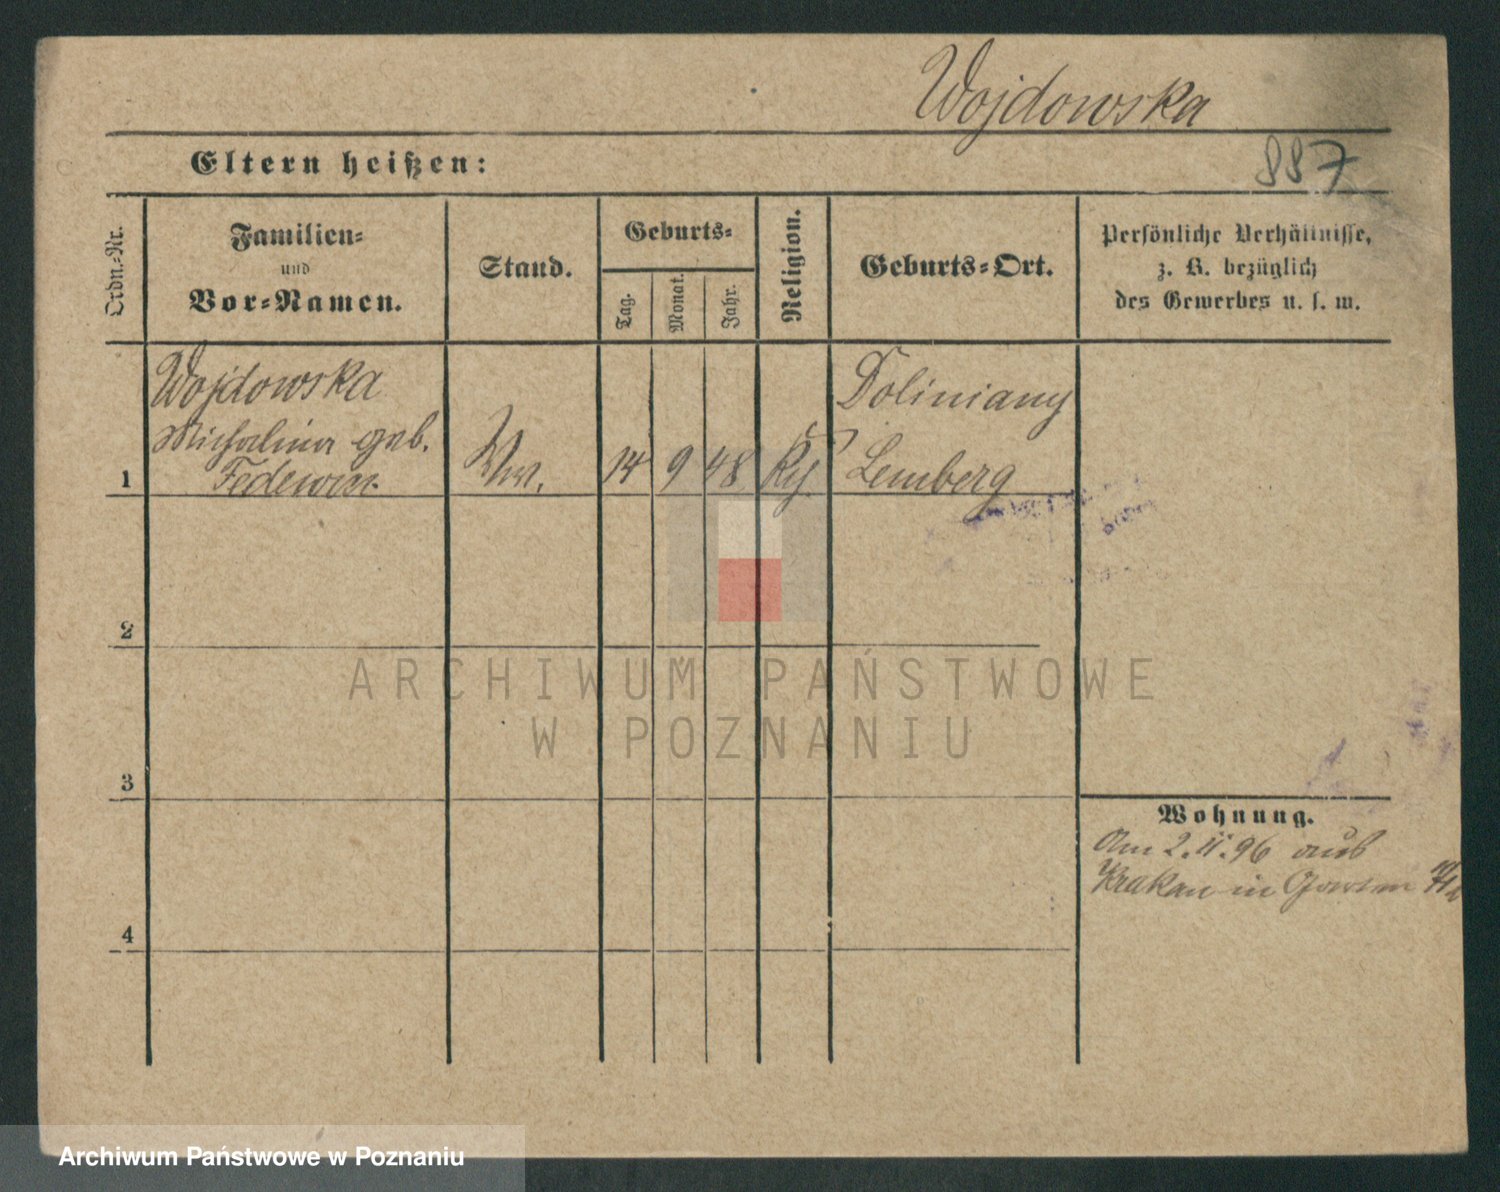 Wojdowska
887
Eltern heißen:
Ordn.-Nr.
Familien-
und
Vor-Namen.
Stand.
Geburts-
Tag.
Monat.
Jahr.
Religion.
Geburts-Ort.
Persönliche Verhältnisse,
z. B. bezüglich
des Gewerbes u. s. w.
1
Wojdowska
Michalina geb.
Ww.
14
9
48
Doliniany
Lemberg
2
3
4
Wohnung.
Am 2.11.96 aus
Krakau in
ARCHIWUM PAŃSTWOWE
W POZNANIU
Archiwum Państwowe w Poznaniu